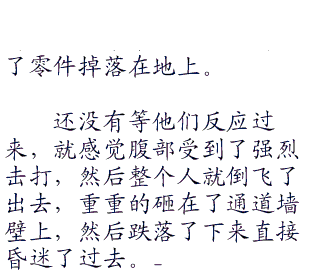 了零件掉落在地上。
还没有等他们反应过
来，就感觉腹部受到了强烈
击打，然后整个人就倒飞了
出去，重重的砸在了通道墙
壁上，然后跌落了下来直接
昏迷了过去。